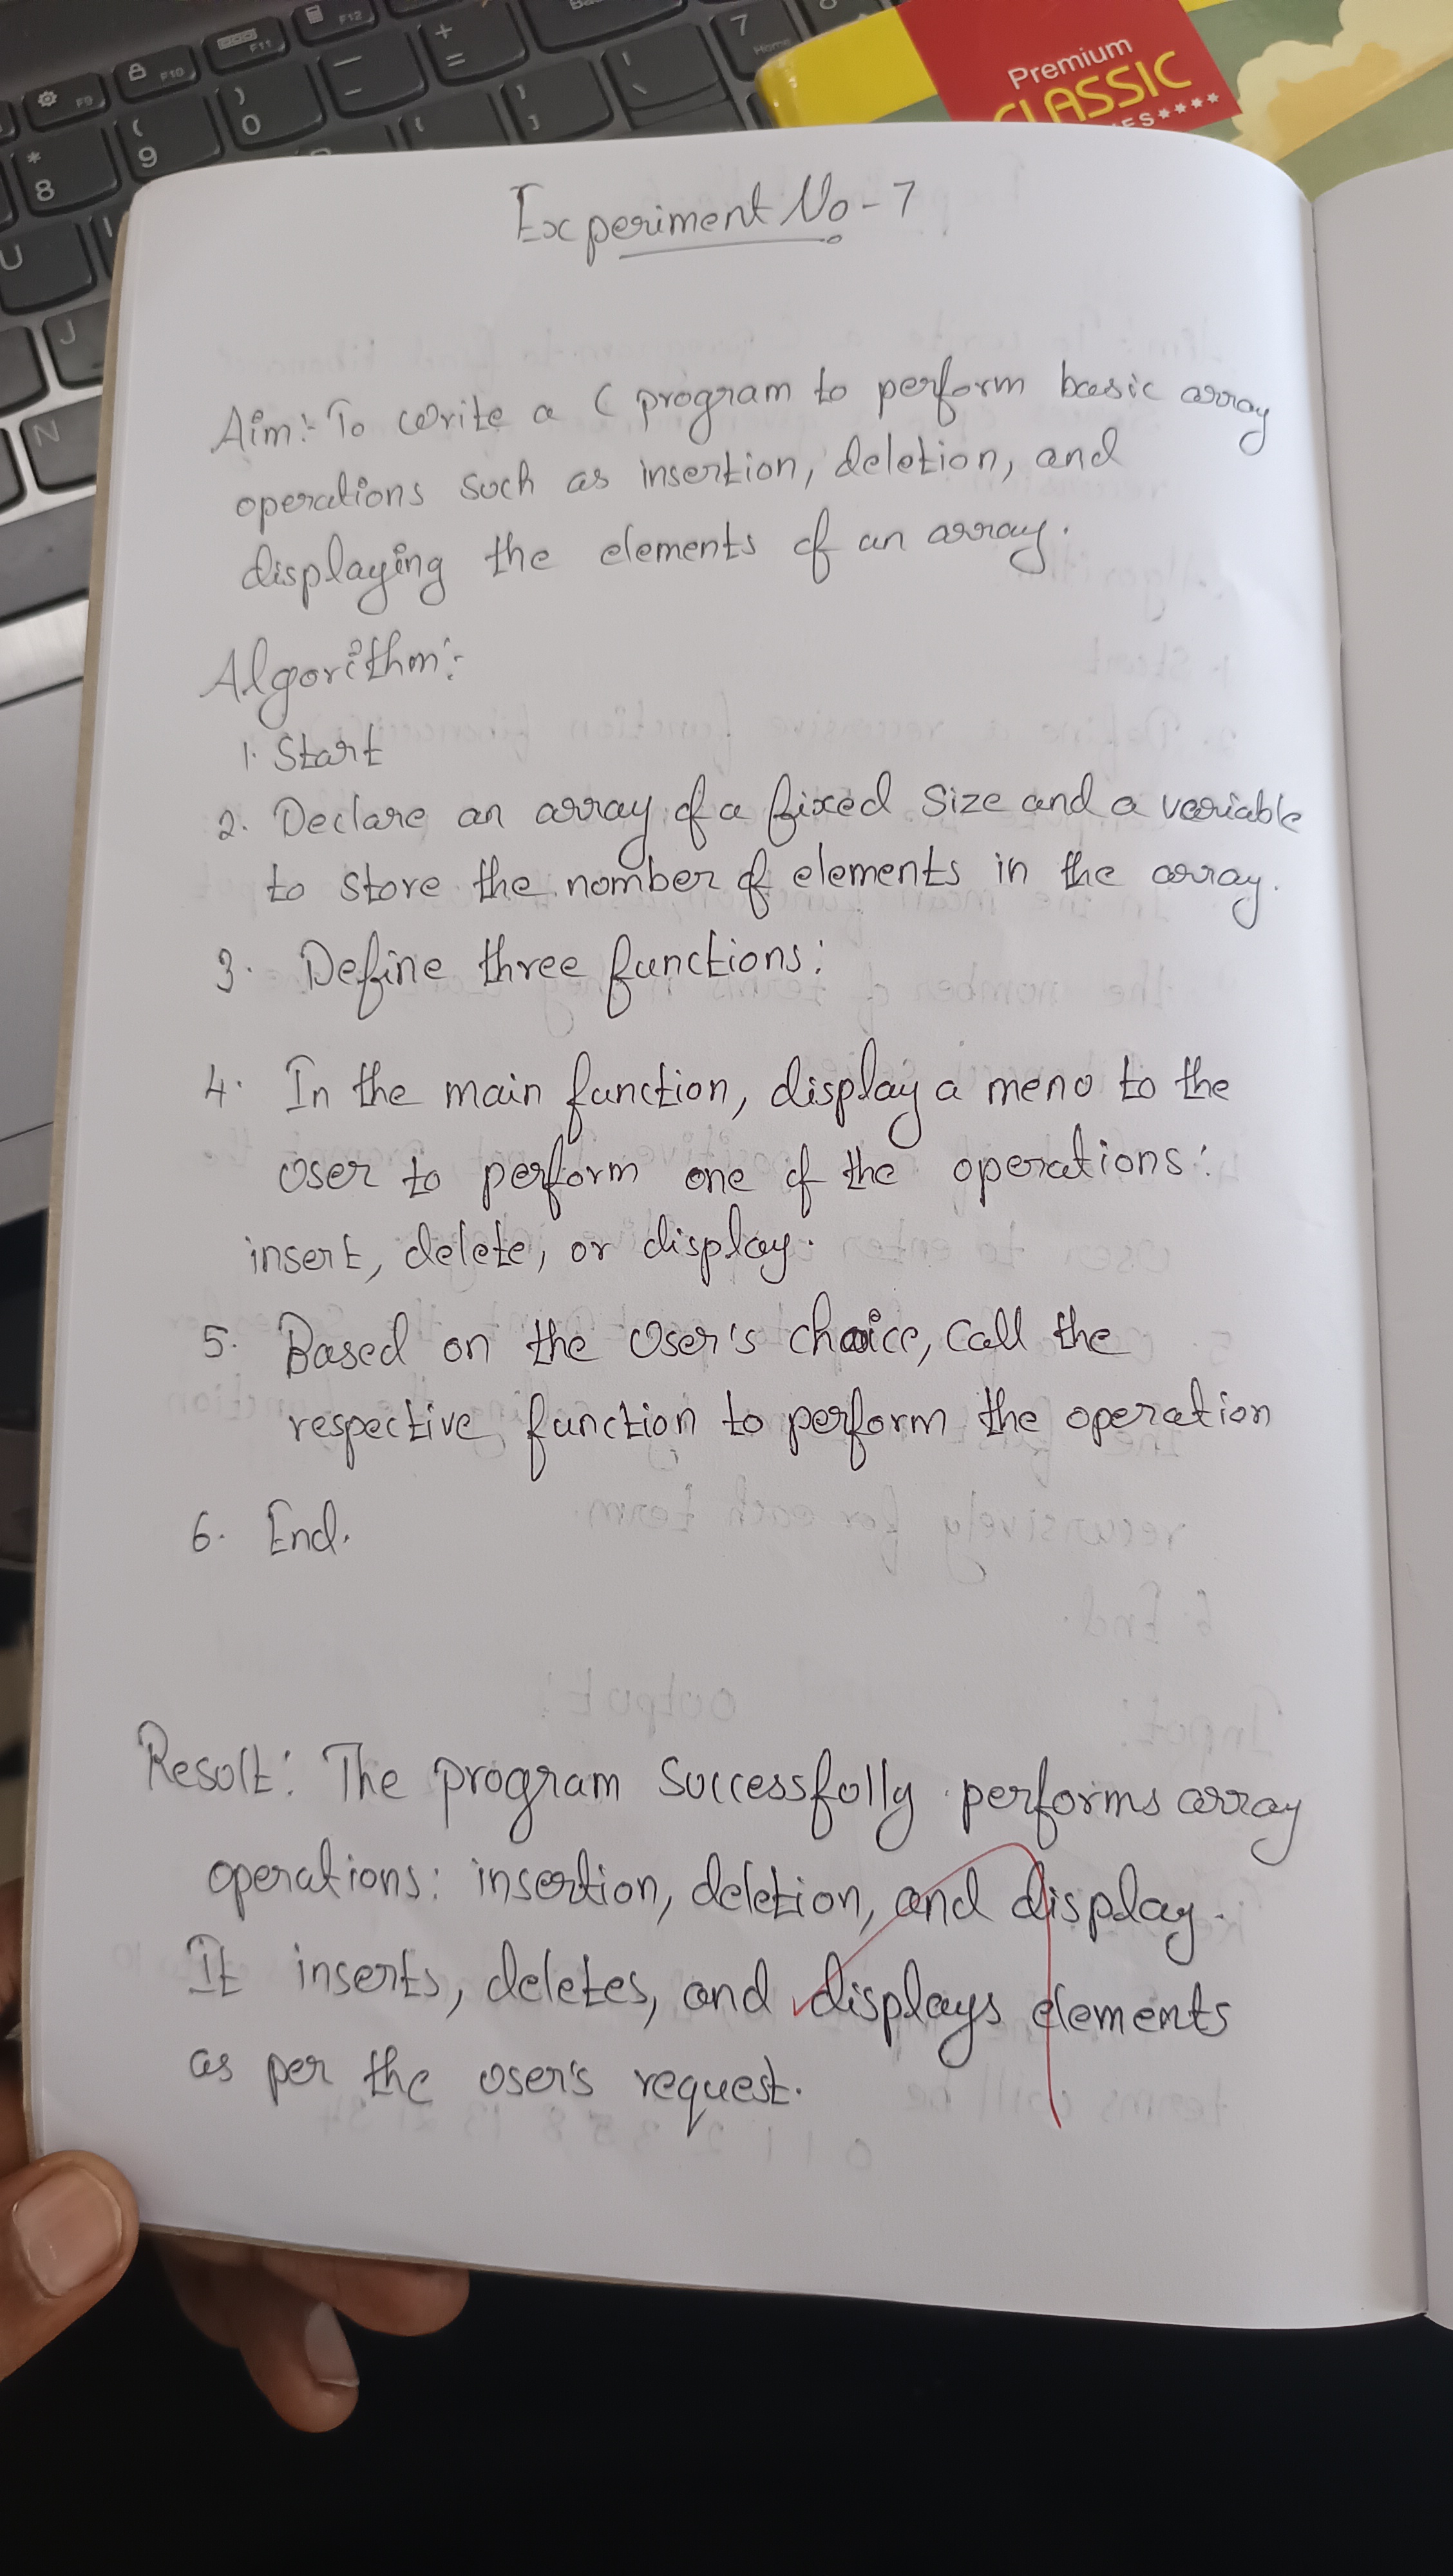 F9
F10
F11
F12
+
=
7
Home
8
9
0
U
J
N
Premium
CLASSIC
Experiment No-7
Aim:- To write a C program to perform basic array
operations such as insertion, deletion, and
displaying the elements of an array.
Algorithm:-
1. Start
2. Declare an array of a fixed size and a variable
to store the number of elements in the array.
3. Define three functions:
4. In the main function, display a menu to the
user to perform one of the operations:
insert, delete, or display.
5. Based on the user's choice, call the
respective function to perform the operation
6. End.
Result: The program successfully performs array
operations: insertion, deletion, and display.
It inserts, deletes, and displays elements
as per the user's request.